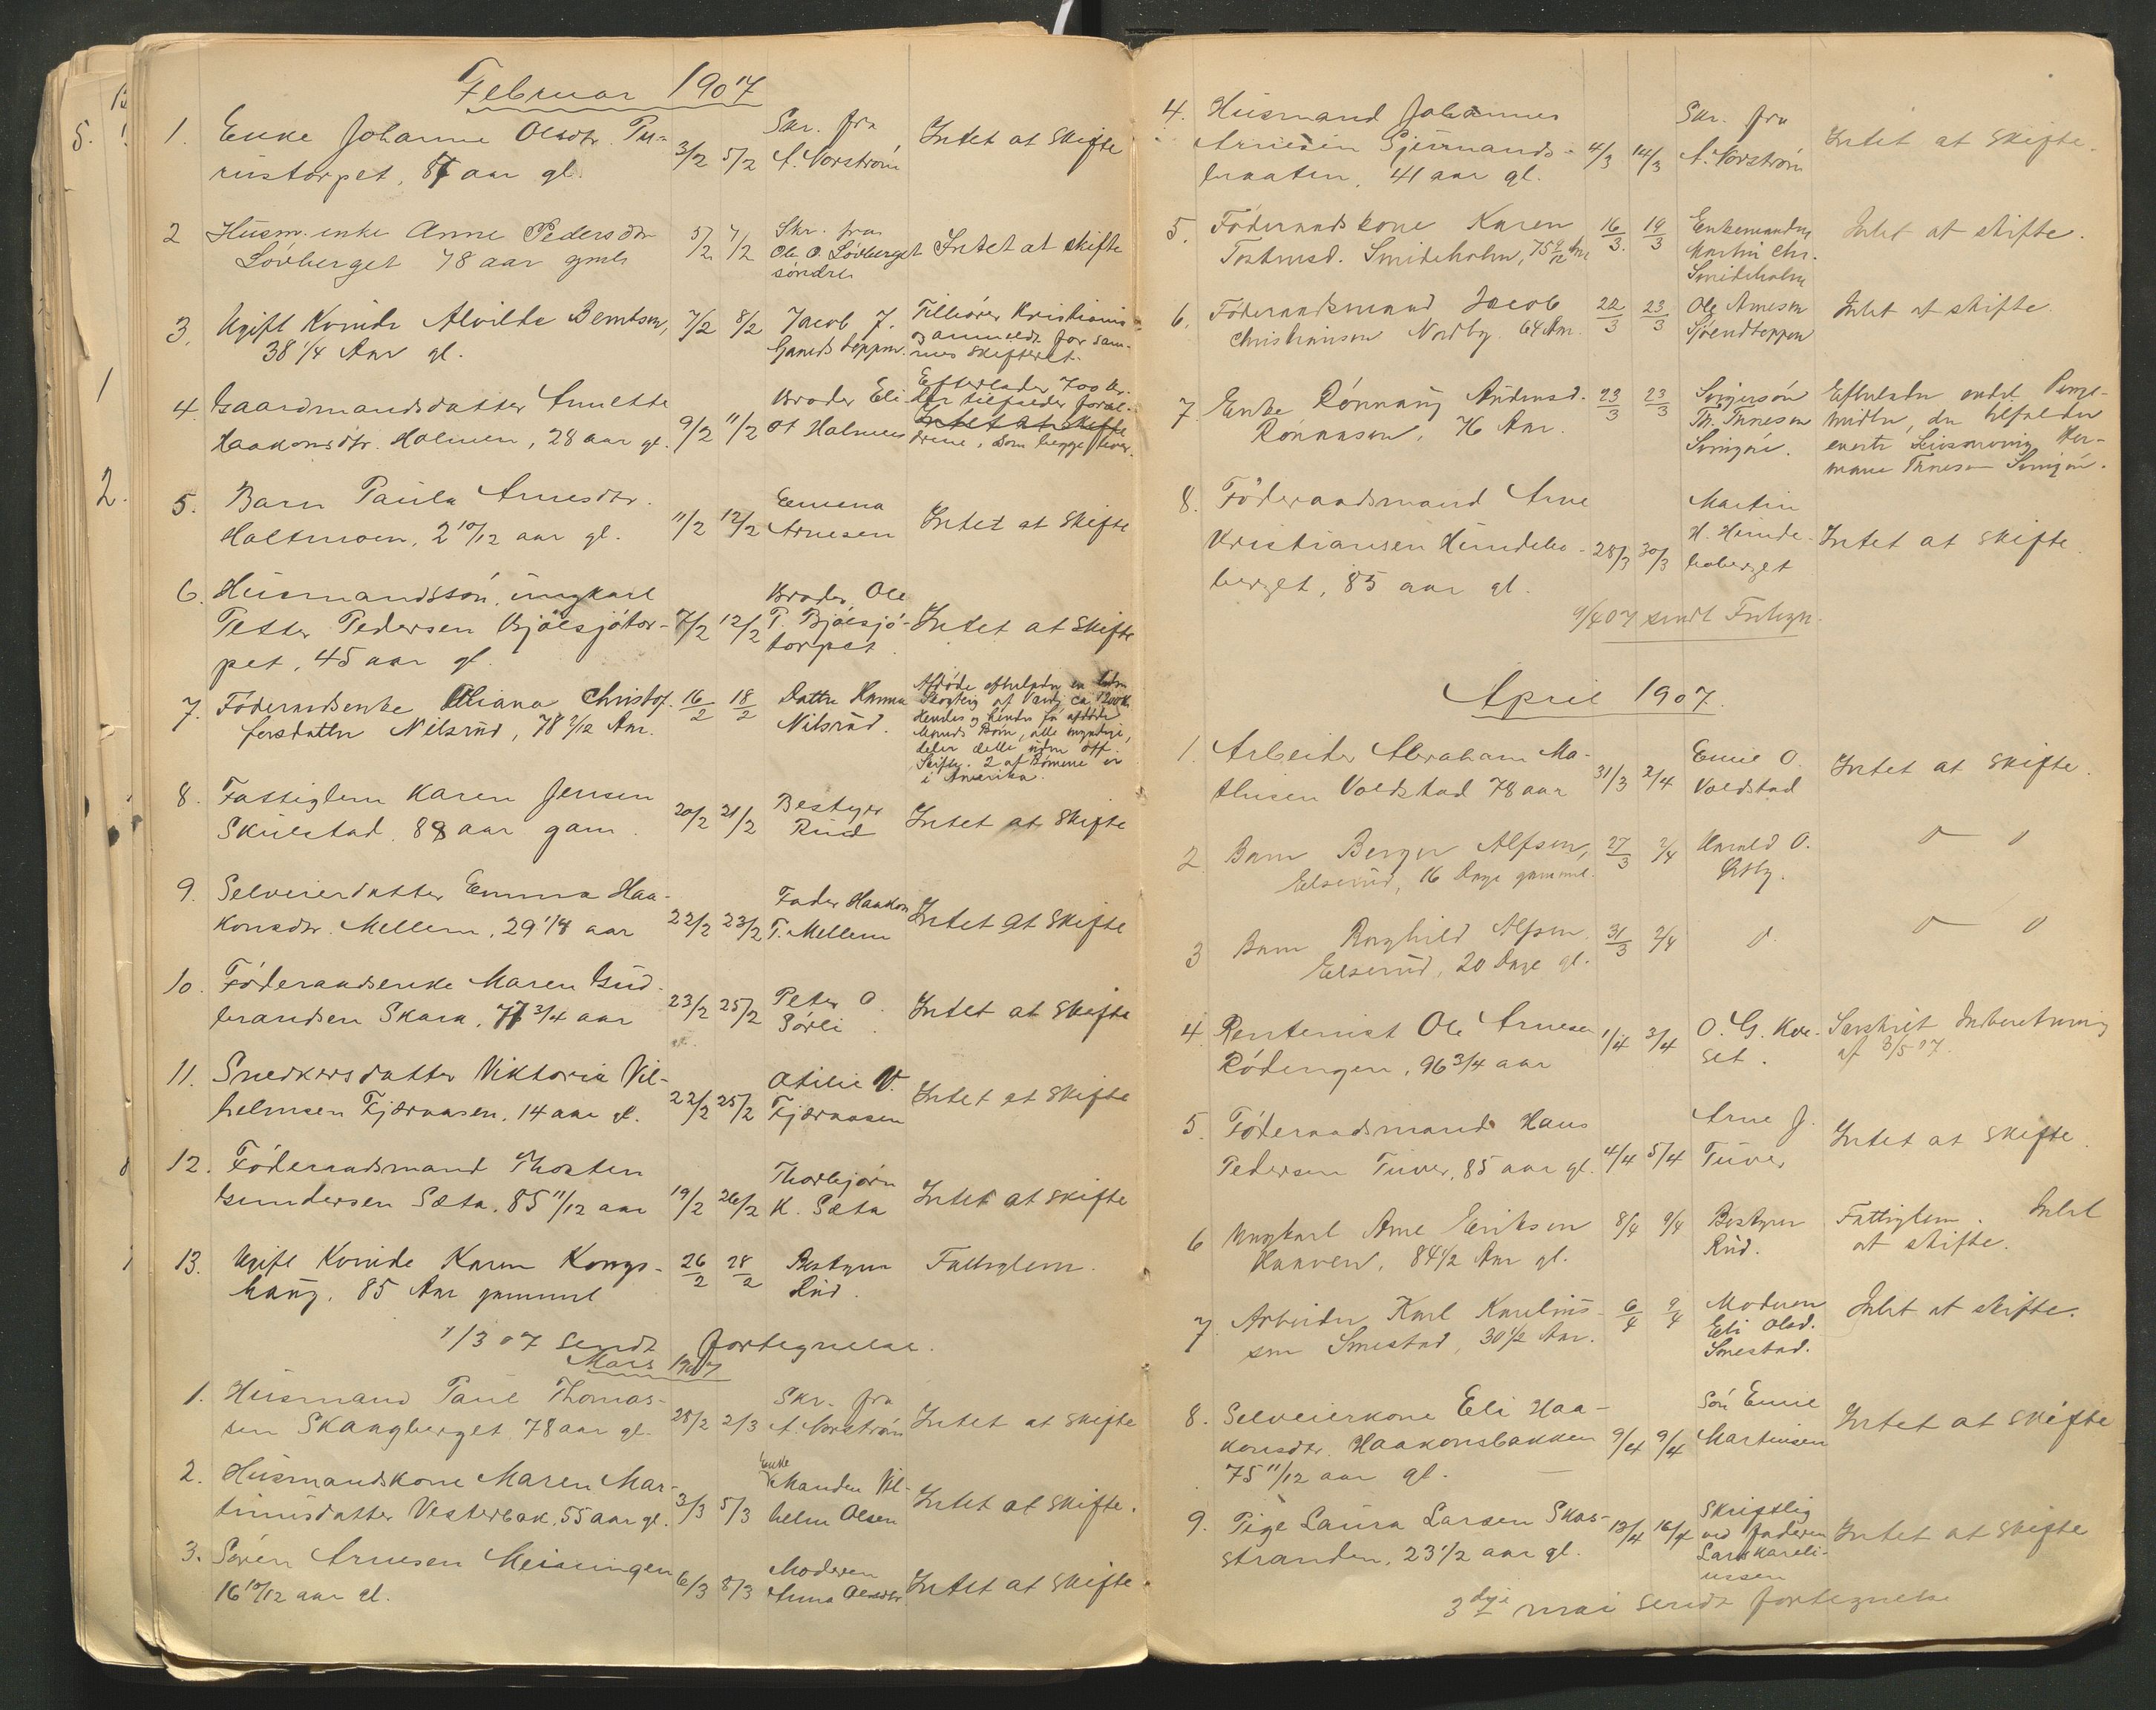 Februar 1907
1. Enke Johanne Olsdtr. Tu-
riistorpet, 87 aar gl.
3/2 5/2
Skr. fra
A. Norström
Intet at skifte
2 Husm. enke Anne Pedersdtr
Lövberget 78 aar gmls
5/2 7/2
Skr. fra
Ole O. Lövberget
söndre
Intet at skifte
3. Ugift Kvinde Alvilde Berntsen,
38 1/4 Aar gl.
7/2 8/2
Jacob J.
Tilhörer Kristiania
og anmeldt for sam-
mes skifteret.
4. Gaardmandsdatter Annette
Haakonsdtr. Holmen, 28 aar gl.
9/2 11/2
Broder Eli-
ot Holmen
Efterlader 700 kr.
der tilfalder foræl-
Intet at skifte
drene, som begge lever.
5. Barn Paula Arnesdtr.
Holtmoen, 2 10/12 aar gl.
11/2 12/2
Emma
Arnesen
Intet at skifte
6. Husmandssön, ungkarl
Petter Pedersen Bjölsjötor-
pet, 45 aar gl.
7/2 12/2
Broder Ole
P. Bjölsjö-
torpet.
Intet at skifte
7. Föderaadsenke Oliana Christof-
fersdatter Nilsrud, 78 2/12 Aar.
16/2 18/2
Datter Hanna
Nilsrud.
Afdöde efterlader en
Skogteig af Værdi ca 1200 kr.
Hendes og hendes för afdöde
Mands Börn, alle myndige,
deler dette uden off.
Skifte. 2 af Börnene er
i Amerika.
8. Fattiglem Karen Jensen
Skulstad. 88 aar gam.
20/2 21/2
Bestyrer
Rud
Intet at skifte
9. Selveierdatter Emma Haa-
konsdtr. Mellem, 29 1/4 aar
22/2 23/2
Fader Haakon
T. Mellem
Intet at skifte
10. Föderaadsenke Maren Gud-
brandsen Skara, 77 3/4 aar
23/2 25/2
Peter O.
Sörli
Intet at skifte
11. Snedkersdatter Viktoria Vil-
helmsen Fjæraasen. 14 aar gl.
22/2 25/2
Otilie V.
Fjæraasen
Intet at skifte
12. Föderaadsmand Thosten
Gundersen Sæta. 85 11/12 aar
19/2 26/2
Thorbjörn
K. Sæta
Intet at skifte
13. Ugift Kvinde Karen Kongs-
haug. 85 Aar gammel
26/2 28/2
Bestyrer
Rud.
Fattiglem.
1/3 07 sendt fortegnelse.
Mars 1907
1. Husmand Paul Thomas-
sen Skaagberget 78 aar gl.
28/2 2/3
Skr. fra
A. Norström
Intet at skifte
2. Husmandskone Maren Mar-
tinusdatter Vesterbak. 55 aar gl.
3/3 5/3
Enke
Manden Vil-
helm Olsen
Intet at skifte.
3. Sören Arnesen Meisningen
16 10/12 aar gl.
6/3 8/3
Moderen
Anna Olsdtr
Intet at skifte.
4. Husmand Johannes
braaten, 41 aar gl.
4/3 14/3
Skr. fra
A. Norström
Intet at skifte.
5. Föderaadskone Karen
Tostensd. Smideholm, 75 9/12 Aar
16/3. 19/3
Enkemanden
Martin Chr.
Smideholm
Intet at skifte.
6. Föderaadsmand Jacob
Christiansen Nordby. 64 Aar.
22/3 23/3
Ole Arnesen
Intet at skifte.
7. Enke Rönnaug Andersd.
Rönaasen, 76 Aar.
23/3 23/3
Th. Thoresen
Efterlader endel Penge-
midler, der tilfalder
8. Föderaadsmand Arne
Kristiansen Hundebo-
berget, 85 aar gl.
28/3 30/3
Martin
H. Hunde-
boberget
Intet at skifte.
9/4 07 sendt Fortegn.
April 1907.
1. Arbeider Abraham Ma-
thisen Voldstad 78 aar
31/3 2/4
Emil O.
Voldstad
Intet at skifte.
2 Barn Berger Alfsen,
Elsrud, 16 Dage gammel.
27/3 2/4
Harald O.
3 Barn Ragnhild Alfsen
Elsrud, 20 Dage gl.
31/3 2/4
4. Rentenist Ole Arnesen
Rödengen, 96 3/4 aar
1/4 3/4
O. G. Kve-
set.
Særskilt Indberetning
af 3/5 07.
5. Föderaadsmand Hans
Pedersen Tuver, 85 aar gl.
4/4 5/4
Arne J.
Tuver
Intet at skifte.
6 Ungkarl Arne Eriksen
Kaaven, 84 1/2 Aar gl.
8/4 9/4
Bestyrer
Rud.
Fattiglem. Intet
at skifte.
7. Arbeider Karl Karelius-
sen Smestad, 30 1/2 Aar.
6/4 9/4
Moderen
Eli Olsd.
Smestad.
Intet at skifte.
8. Selveierkone Eli Haa-
konsdtr. Haakonsbakken
75 11/12 aar gl.
9/4 9/4
Sön Emil
Martinsen
Intet at skifte
9. Pige Laura Larsen Skas-
stranden, 23 1/2 aar gl.
13/4 16/4
Skriftlig
ved faderen
Lars Kareli-
ussen
Intet at skifte
3die mai sendt fortegnelse